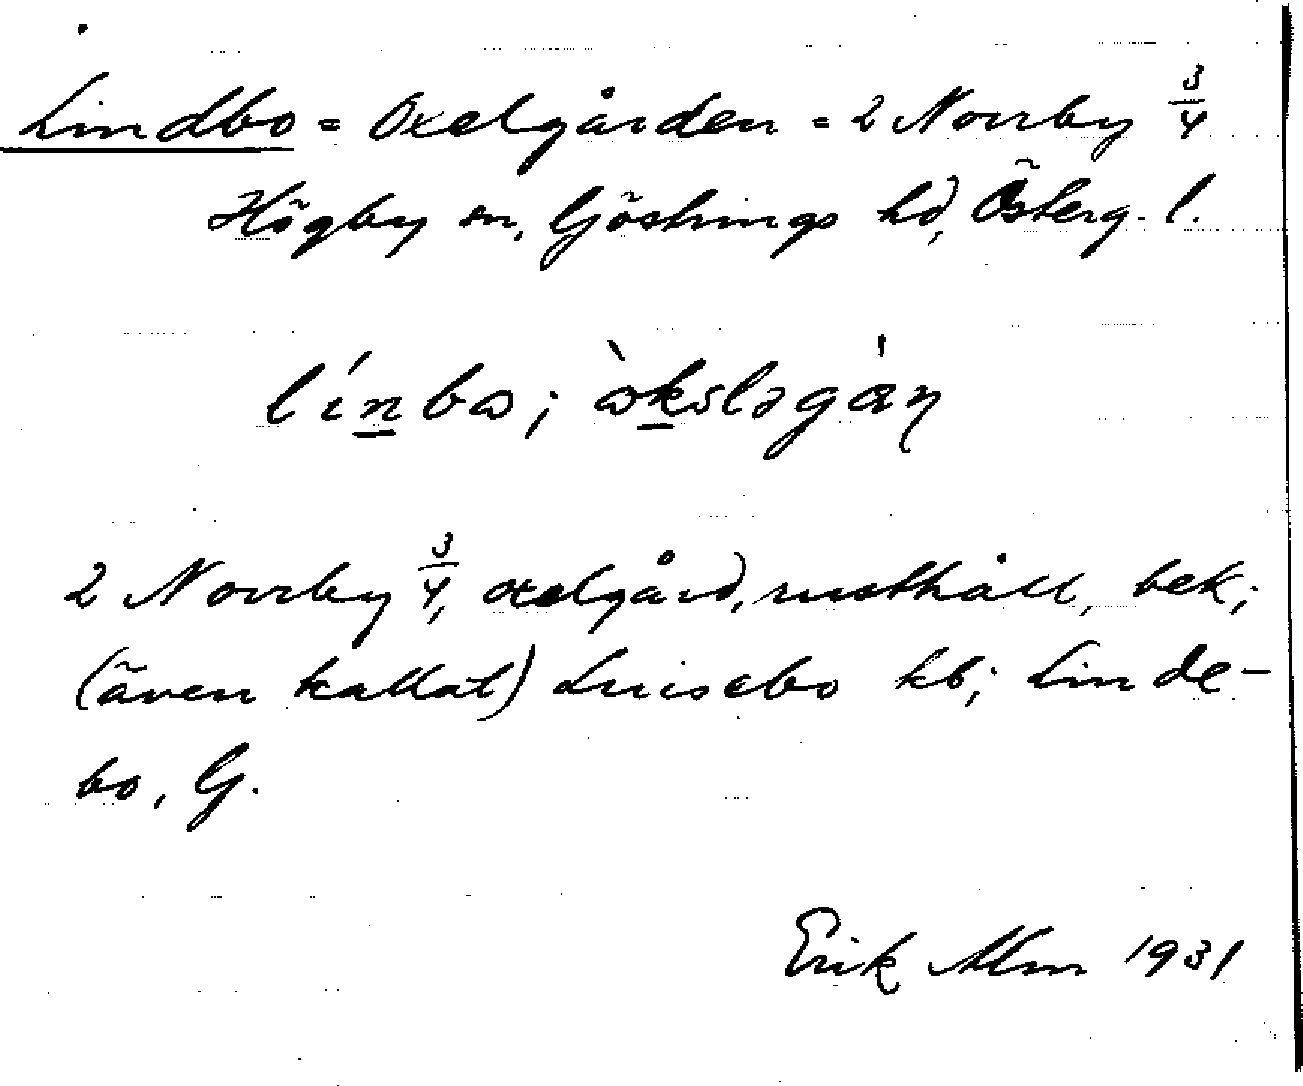 Lindbo = Oxelgården = 2 Norrby 3/4
Högby sn, Göstrings hd, Österg. l.
línbɷ; ɷ̀kslǝgán̥
2 Norrby 3/4, oxelgård, rusthåll, bek.;
(även kallat) Luisebo kb; Linde-
bo, G.
Erik Alm 1931